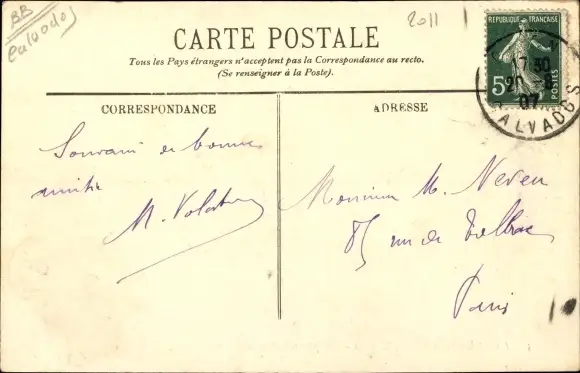 BB
Calvados
2011
CARTE POSTALE
Tous les Pays étrangers n'acceptent pas la Correspondance au recto.
(Se renseigner à la Poste).
REPUBLIQUE FRANÇAISE
5c
POSTES
17 30
20 -8
07
CALVADOS
CORRESPONDANCE
ADRESSE
Souvenir de bonne
amitié
M.
Monsieur M. Neveu
85 rue de
Paris